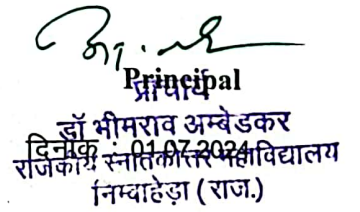 Principal
प्राचार्य
डॉ भीमराव अम्बेडकर
दिनांक : 01.07.2024
राजकीय स्नातकोत्तर महाविद्यालय
निम्बाहेड़ा (राज.)